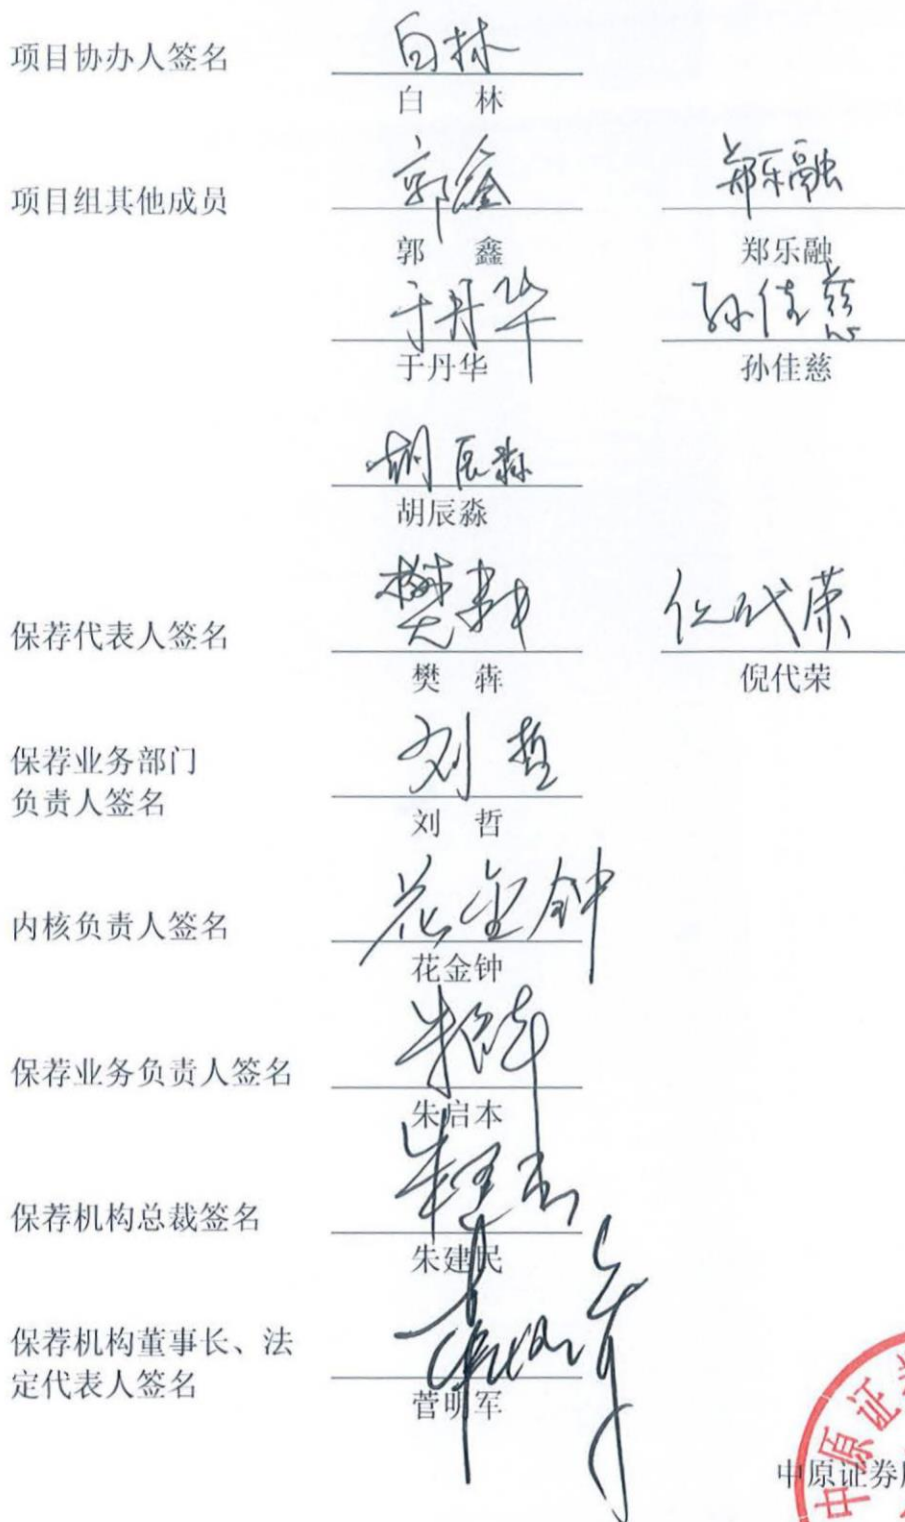 项目协办人签名 白林
白 林
项目组其他成员 郭鑫 郑乐融
郭 鑫 郑乐融
于丹华 孙佳慈
于丹华 孙佳慈
胡辰淼
胡辰淼
保荐代表人签名 樊犇 倪代荣
樊 犇 倪代荣
保荐业务部门
负责人签名 刘哲
刘 哲
内核负责人签名 花金钟
花金钟
保荐业务负责人签名 朱启本
朱启本
保荐机构总裁签名 朱建民
朱建民
保荐机构董事长、法
定代表人签名 菅明军
菅明军
中原证券
中原证券